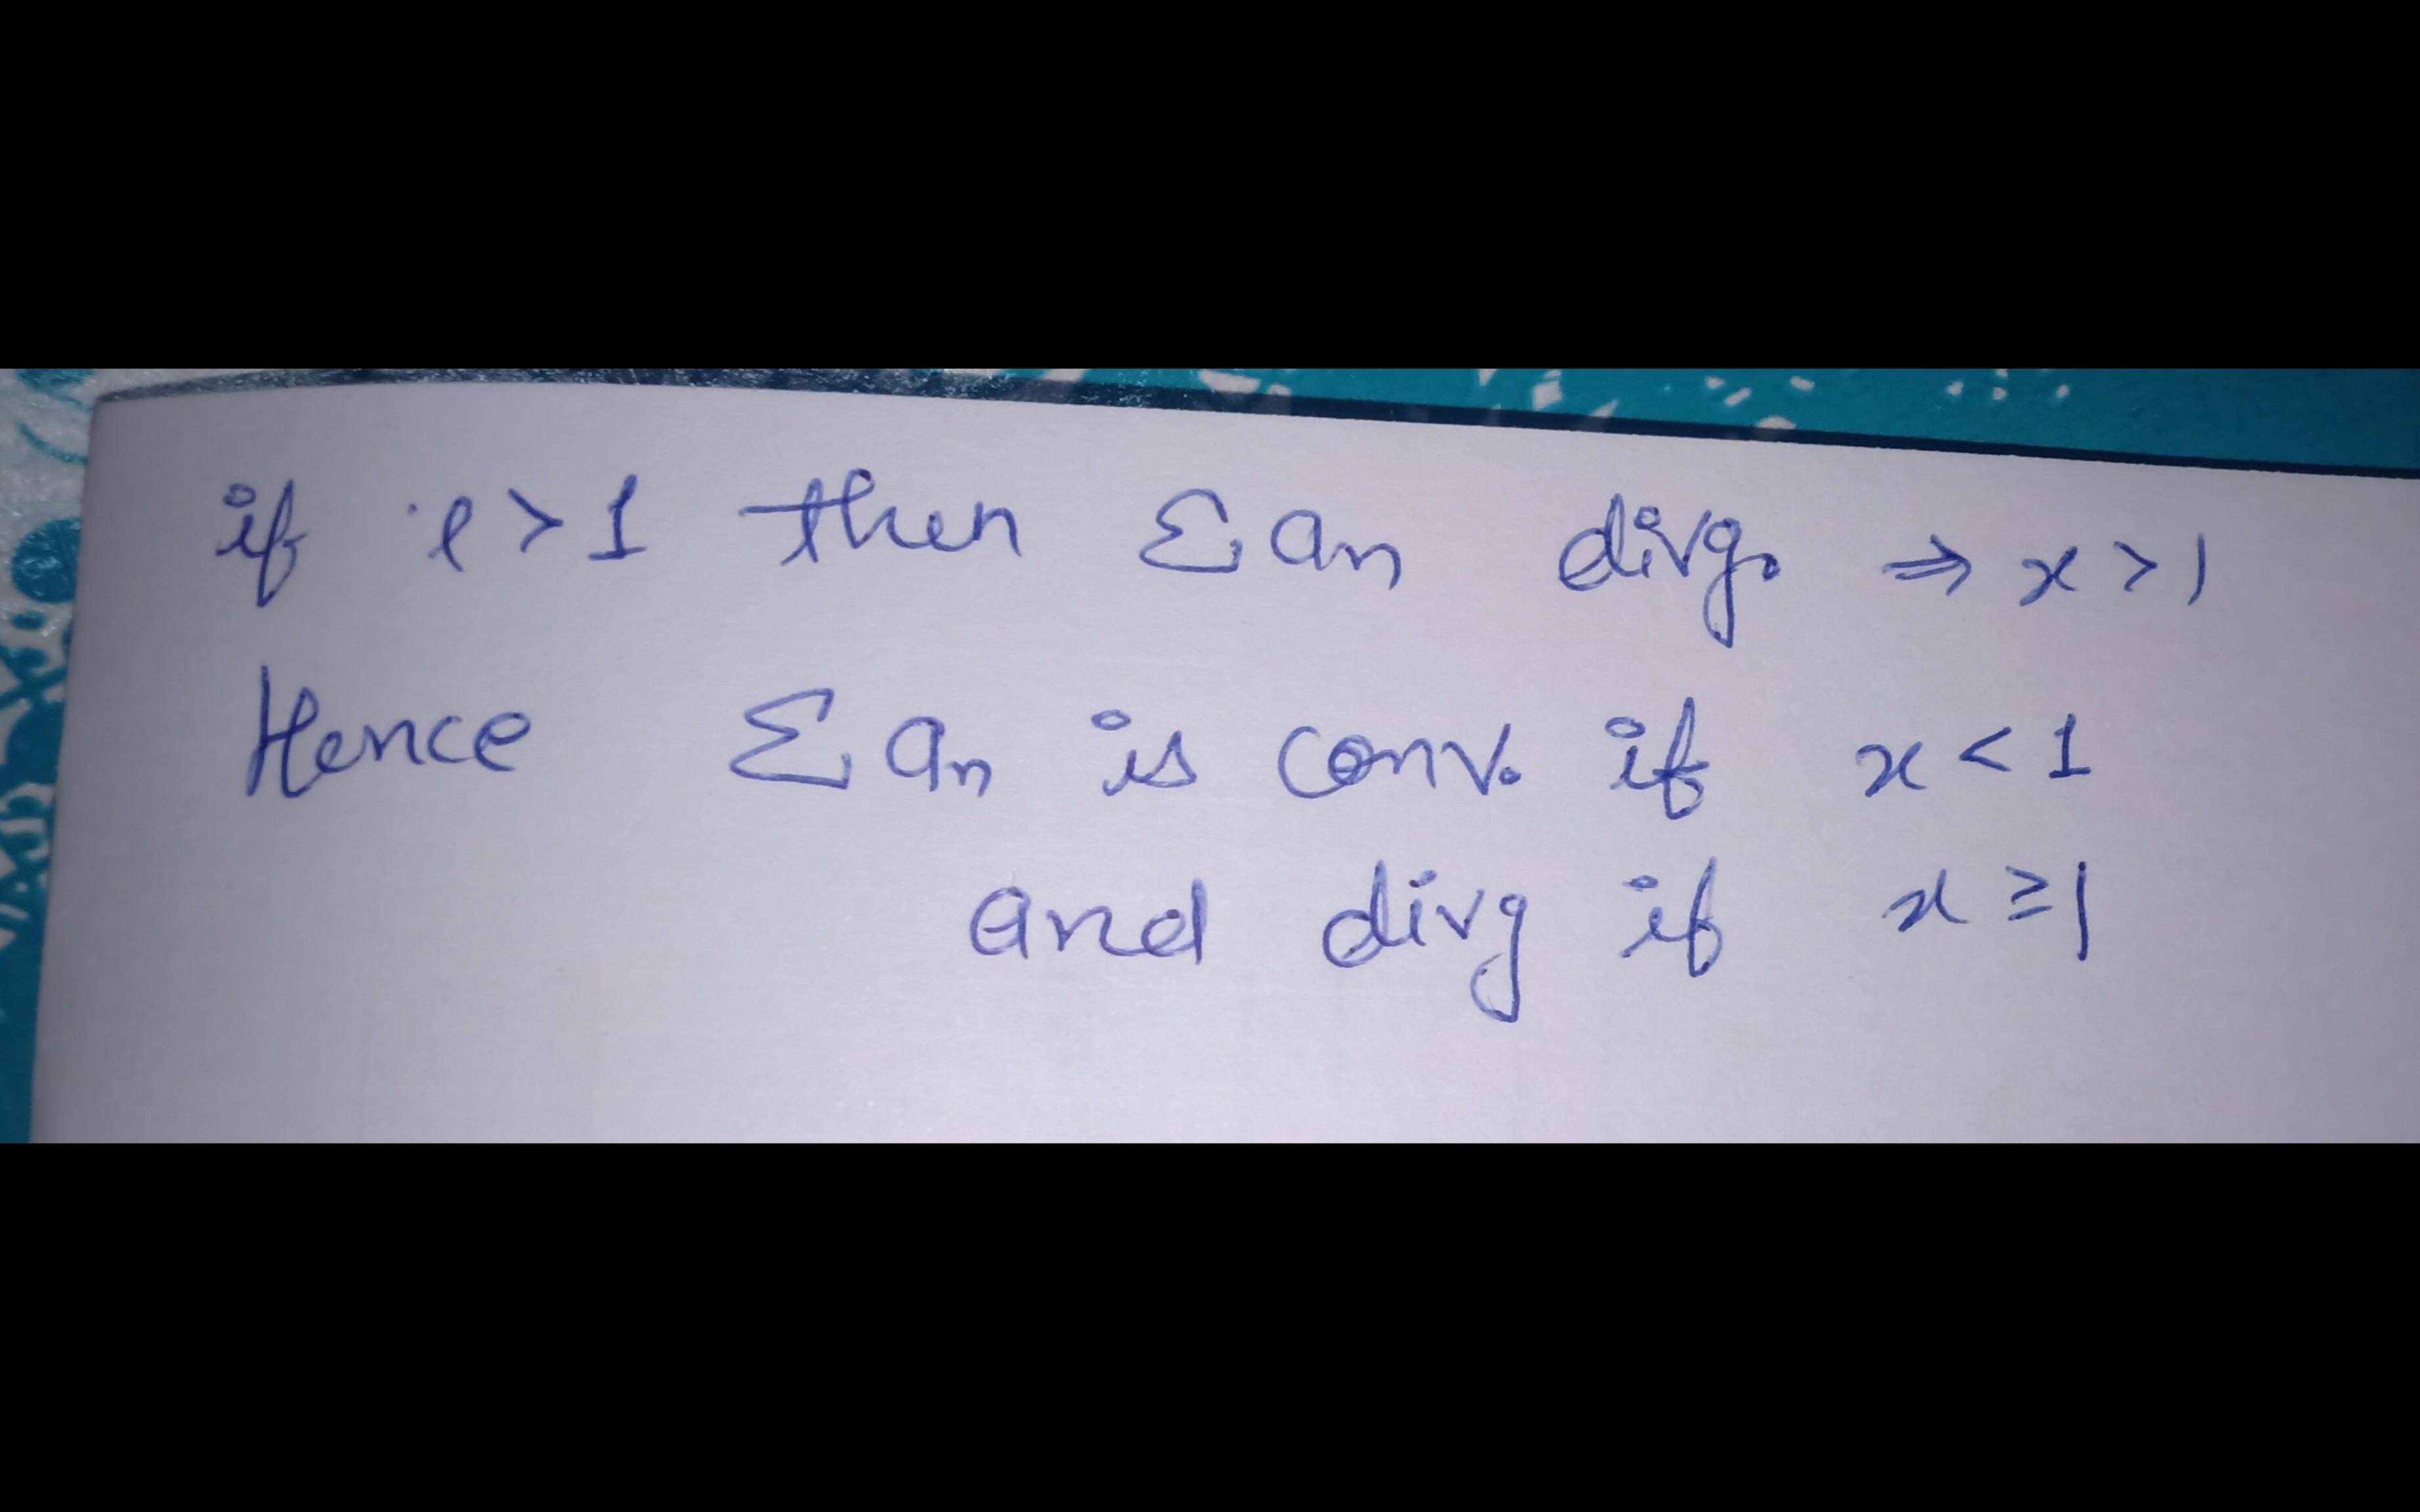 if l > 1 then Σ an divg. ⇒ x > 1
Hence Σ an is conv. if x < 1
and divg if x ≥ 1